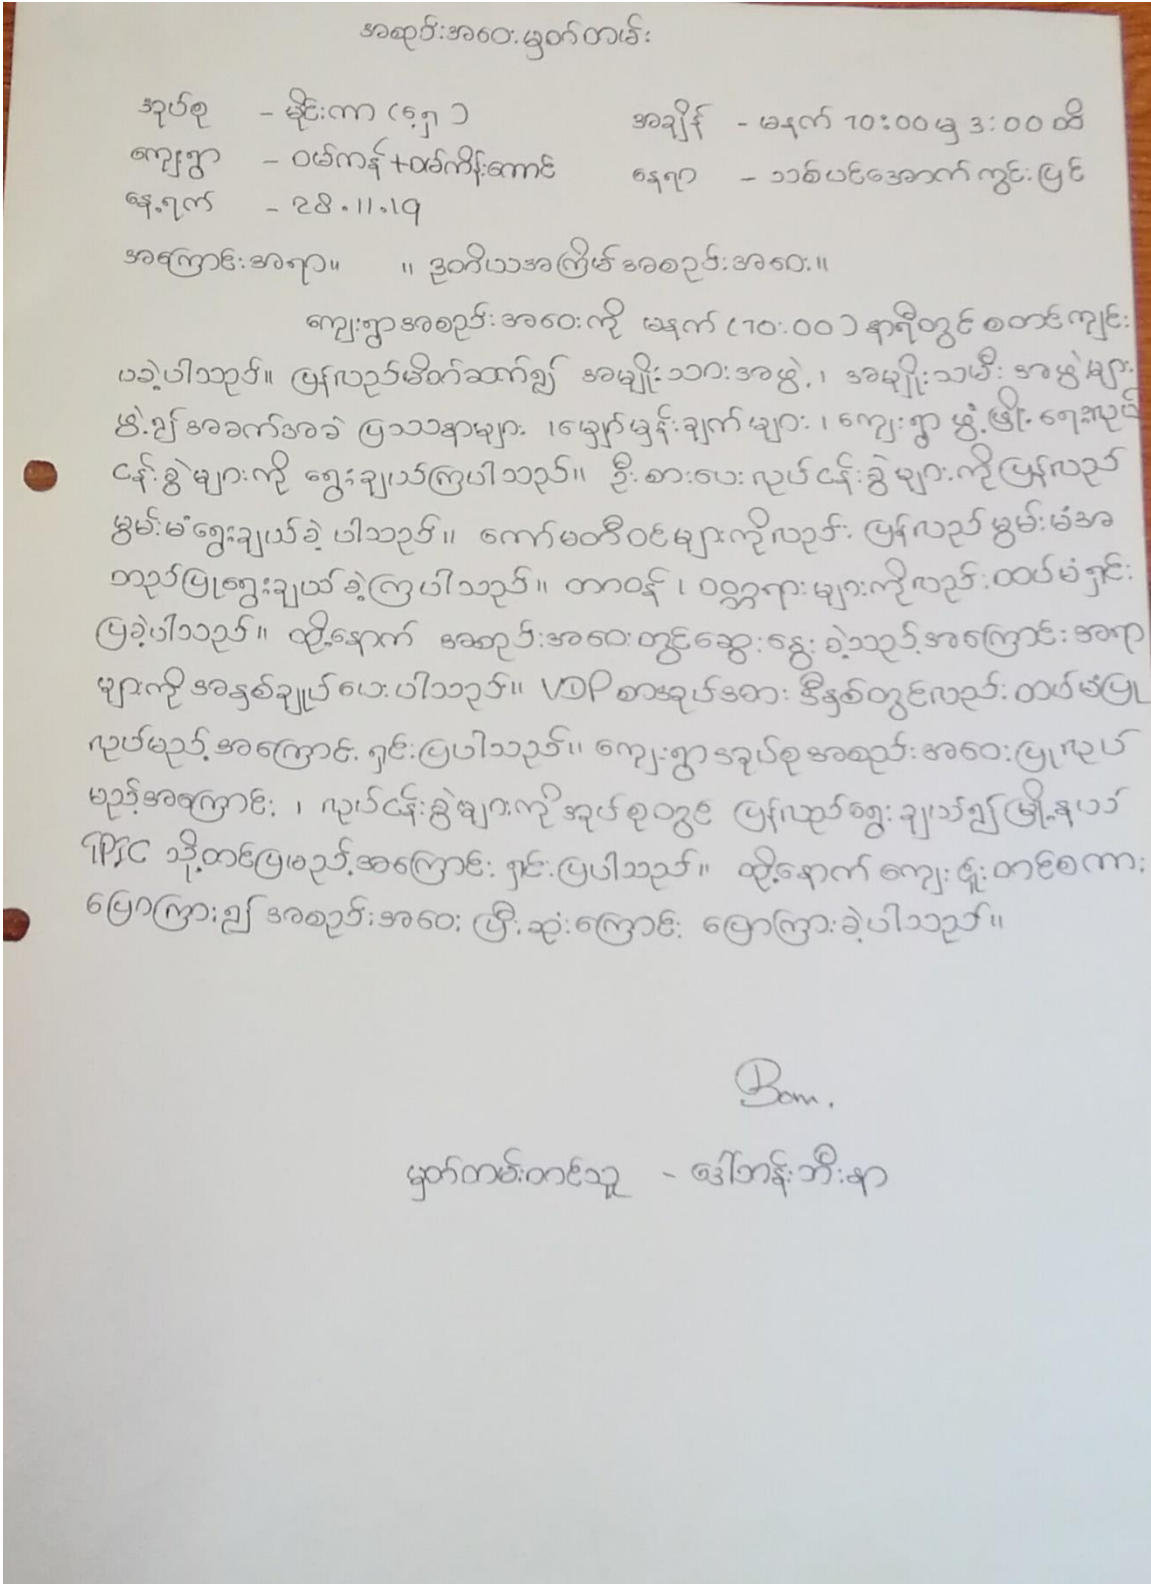 အစည်းအဝေးမှတ်တမ်း
အုပ်စု - မိုင်းကာ (ရှေ့) အချိန် - မနက် 10:00 မှ 3:00 ထိ
ကျေးရွာ - ဝမ်ကန် + ဝမ်ကိန်းကောင် နေရာ - သစ်ပင်အောက်ကွင်းပြင်
နေ့ရက် - 28.11.19
အကြောင်းအရာ။ ။ ဒုတိယအကြိမ်အစည်းအဝေး။
ကျေးရွာအစည်းအဝေးကို မနက် (10:00) နာရီတွင် စတင်ကျင်း
ပခဲ့ပါသည်။ ပြန်လည်မိတ်ဆက်၍ အမျိုးသားအဖွဲ့၊ အမျိုးသမီး အဖွဲ့များ
ဖွဲ့၍ အခက်အခဲ ပြဿနာများ ၊ မျှော်မှန်းချက်များ ၊ ကျေးရွာ ဖွံ့ဖြိုး ရေးလုပ်
ငန်းခွဲများကို ရွေးချယ်ကြပါသည်။ ဦးစားပေး လုပ်ငန်းခွဲများကို ပြန်လည်
မွမ်းမံရွေးချယ်ခဲ့ ပါသည်။ ကော်မတီဝင်များကိုလည်း ပြန်လည်မွမ်းမံအ
တည်ပြုရွေးချယ် ခဲ့ကြပါသည်။ တာဝန် ၊ ဝတ္တရားများကိုလည်း ထပ်မံရှင်း
ပြခဲ့ပါသည်။ ထို့နောက် အစည်းအဝေးတွင်ဆွေးနွေး ခဲ့သည့်အကြောင်းအရာ
များကို အနှစ်ချုပ်ပေးပါသည်။ VDP စာအုပ်အား ဒီနှစ်တွင်လည်း ထပ်မံပြု
လုပ်မည့် အကြောင်း ရှင်းပြပါသည်။ ကျေးရွာအုပ်စုအစည်းအဝေး ပြုလုပ်
မည့်အကြောင်း ၊ လုပ်ငန်းခွဲများကိုအုပ်စုတွင် ပြန်လည်ရွေးချယ်၍ မြို့နယ်
TPIC သို့တင်ပြမည့်အကြောင်း ရှင်းပြပါသည်။ ထို့နောက် ကျေးဇူးတင်စကား
ပြောကြား၍ အစည်းအဝေး ပြီးဆုံးကြောင်း ပြောကြားခဲ့ပါသည်။
Bom.
မှတ်တမ်းတင်သူ - ဒေါ်ဘန်းဘီးနာ